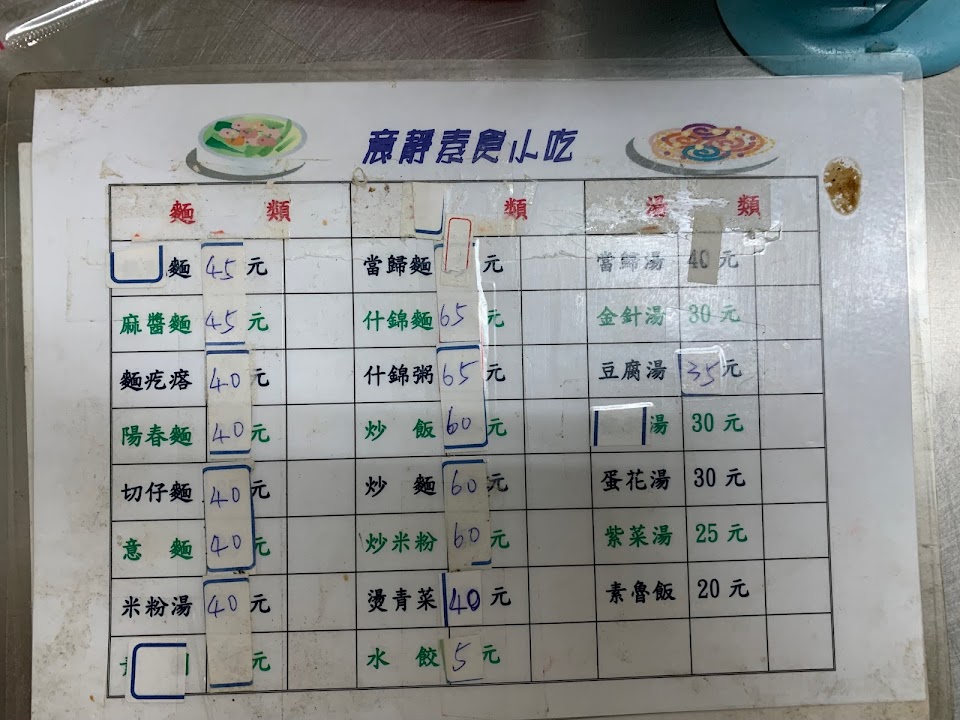 意靜素食小吃
麵 類 類 湯 類
麵 45 元 當歸麵 元 當歸湯 40 元
麻醬麵 45 元 什錦麵 65 元 金針湯 30 元
麵疙瘩 40 元 什錦粥 65 元 豆腐湯 35 元
陽春麵 40 元 炒 飯 60 元 湯 30 元
切仔麵 40 元 炒 麵 60 元 蛋花湯 30 元
意 麵 40 元 炒米粉 60 元 紫菜湯 25 元
米粉湯 40 元 燙青菜 40 元 素魯飯 20 元
元 水 餃 5 元